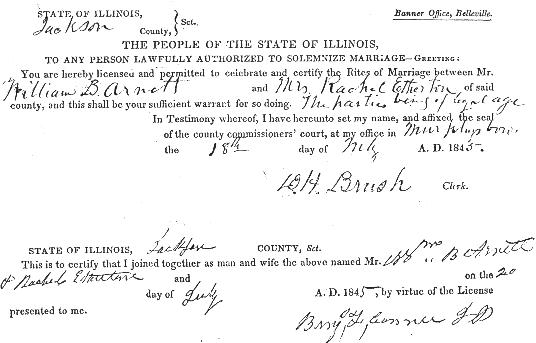 STATE OF ILLINOIS, } Sct. Banner Office, Belleville.
Jackson County,
THE PEOPLE OF THE STATE OF ILLINOIS,
TO ANY PERSON LAWFULLY AUTHORIZED TO SOLEMNIZE MARRIAGE—GREETING:
You are hereby licensed and permitted to celebrate and certify the Rites of Marriage between Mr.
William B. Arnett and Mrs. Rachel Etherton of said
county, and this shall be your sufficient warrant for so doing. The parties being of legal age
In Testimony whereof, I have hereunto set my name, and affixed, the seal
of the county commissioners' court, at my office in Murphysboro
the 18th day of July A. D. 1845.
D.H. Brush Clerk.
STATE OF ILLINOIS, Jackson COUNTY, Sct.
This is to certify that I joined together as man and wife the above named Mr. Wm B Arnett
& Rachel and on the 20
day of July A. D. 1845, by virtue of the License
presented to me.
Conner